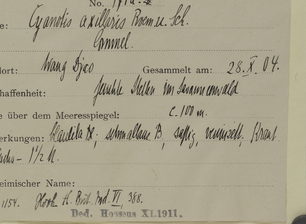 No.
Cyanotis axillaris Roem et Sch.
Commel
dort: Wang Djao Gesammelt am: 28. X. 04.
haffenheit: feuchte Stellen im Sommerwald
e über dem Meeresspiegel: c. 100 m.
erkungen: schmallanz. B, saftig, vereinzelt, Kraut
1 1/2 M.
eimischer Name:
1154. Hook. Fl. Brit. Ind. VI, 388.
Ded. Hosseus XI.1911.